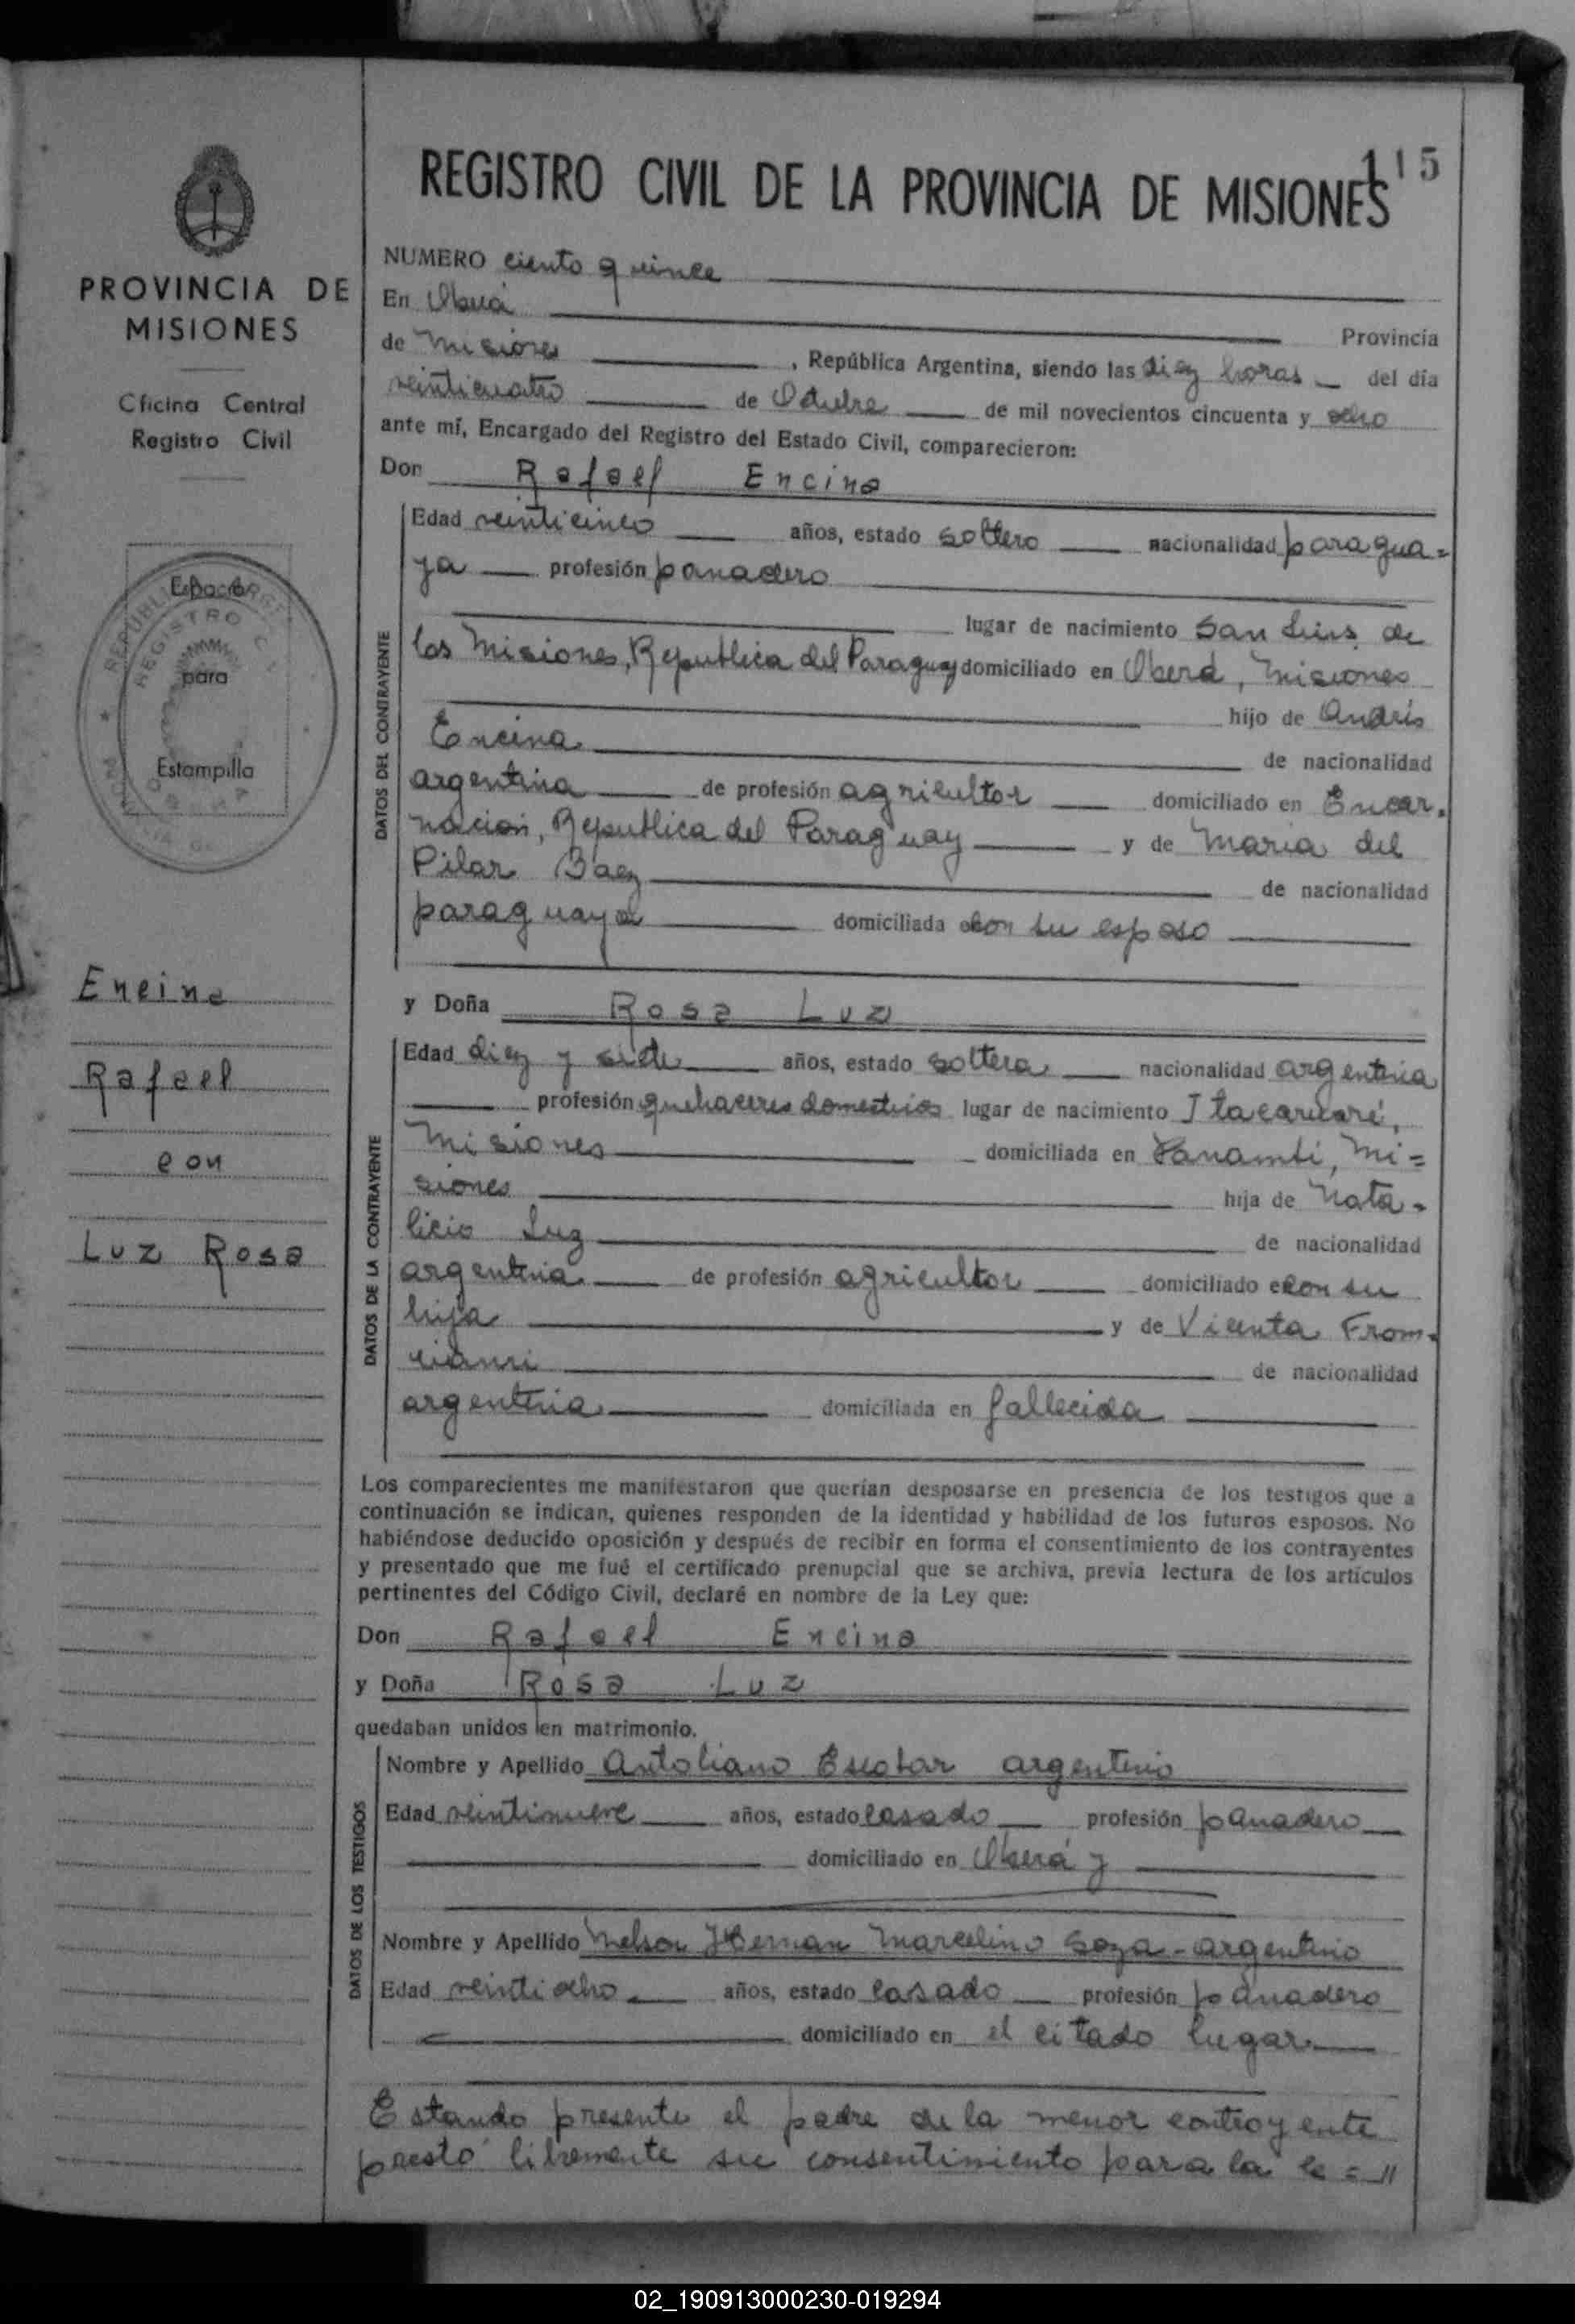 115
REGISTRO CIVIL DE LA PROVINCIA DE MISIONES
PROVINCIA DE
MISIONES
Oficina Central
Registro Civil
Espacio
para
Estampilla
REGISTRO
Encina
Rafael
con
Luz Rosa
NUMERO ciento quince
En Oberá Provincia
de Misiones, República Argentina, siendo las diez horas del día
veinticuatro de Octubre de mil novecientos cincuenta y ocho
ante mí, Encargado del Registro del Estado Civil, comparecieron:
Don Rafael Encina
DATOS DEL CONTRAYENTE
Edad veinticinco años, estado soltero nacionalidad paragua=
ya profesión panadero
lugar de nacimiento San Luis de
las Misiones, Republica del Paraguay domiciliado en Oberá, Misiones
hijo de Andrés
Encina de nacionalidad
argentina de profesión agricultor domiciliado en Encar=
nación, Republica del Paraguay y de Maria del
Pilar Baez de nacionalidad
paraguaya domiciliada con su esposo
y Doña Rosa Luz
DATOS DE LA CONTRAYENTE
Edad diez y siete años, estado soltera nacionalidad argentina
profesión quehaceres domesticos lugar de nacimiento Itacaruaré,
Misiones domiciliada en Panambi, Mi=
siones hija de Nata=
licio Luz de nacionalidad
argentina de profesión agricultor domiciliado con su
hija y de Vicenta From=
de nacionalidad
argentina domiciliada en fallecida
Los comparecientes me manifestaron que querían desposarse en presencia de los testigos que a
continuación se indican, quienes responden de la identidad y habilidad de los futuros esposos. No
habiéndose deducido oposición y después de recibir en forma el consentimiento de los contrayentes
y presentado que me fué el certificado prenupcial que se archiva, previa lectura de los artículos
pertinentes del Código Civil, declaré en nombre de la Ley que:
Don Rafael Encina
y Doña Rosa Luz
quedaban unidos en matrimonio.
DATOS DE LOS TESTIGOS
Nombre y Apellido Antoliano Escobar argentino
Edad veintinueve años, estado casado profesión panadero
domiciliado en Oberá y
Nombre y Apellido Nelson Hernan Marcelino Soza - argentino
Edad veintiocho años, estado casado profesión panadero
domiciliado en el citado lugar
Estando presente el padre de la menor contrayente
prestó libremente su consentimiento para la ce=//
02_190913000230-019294